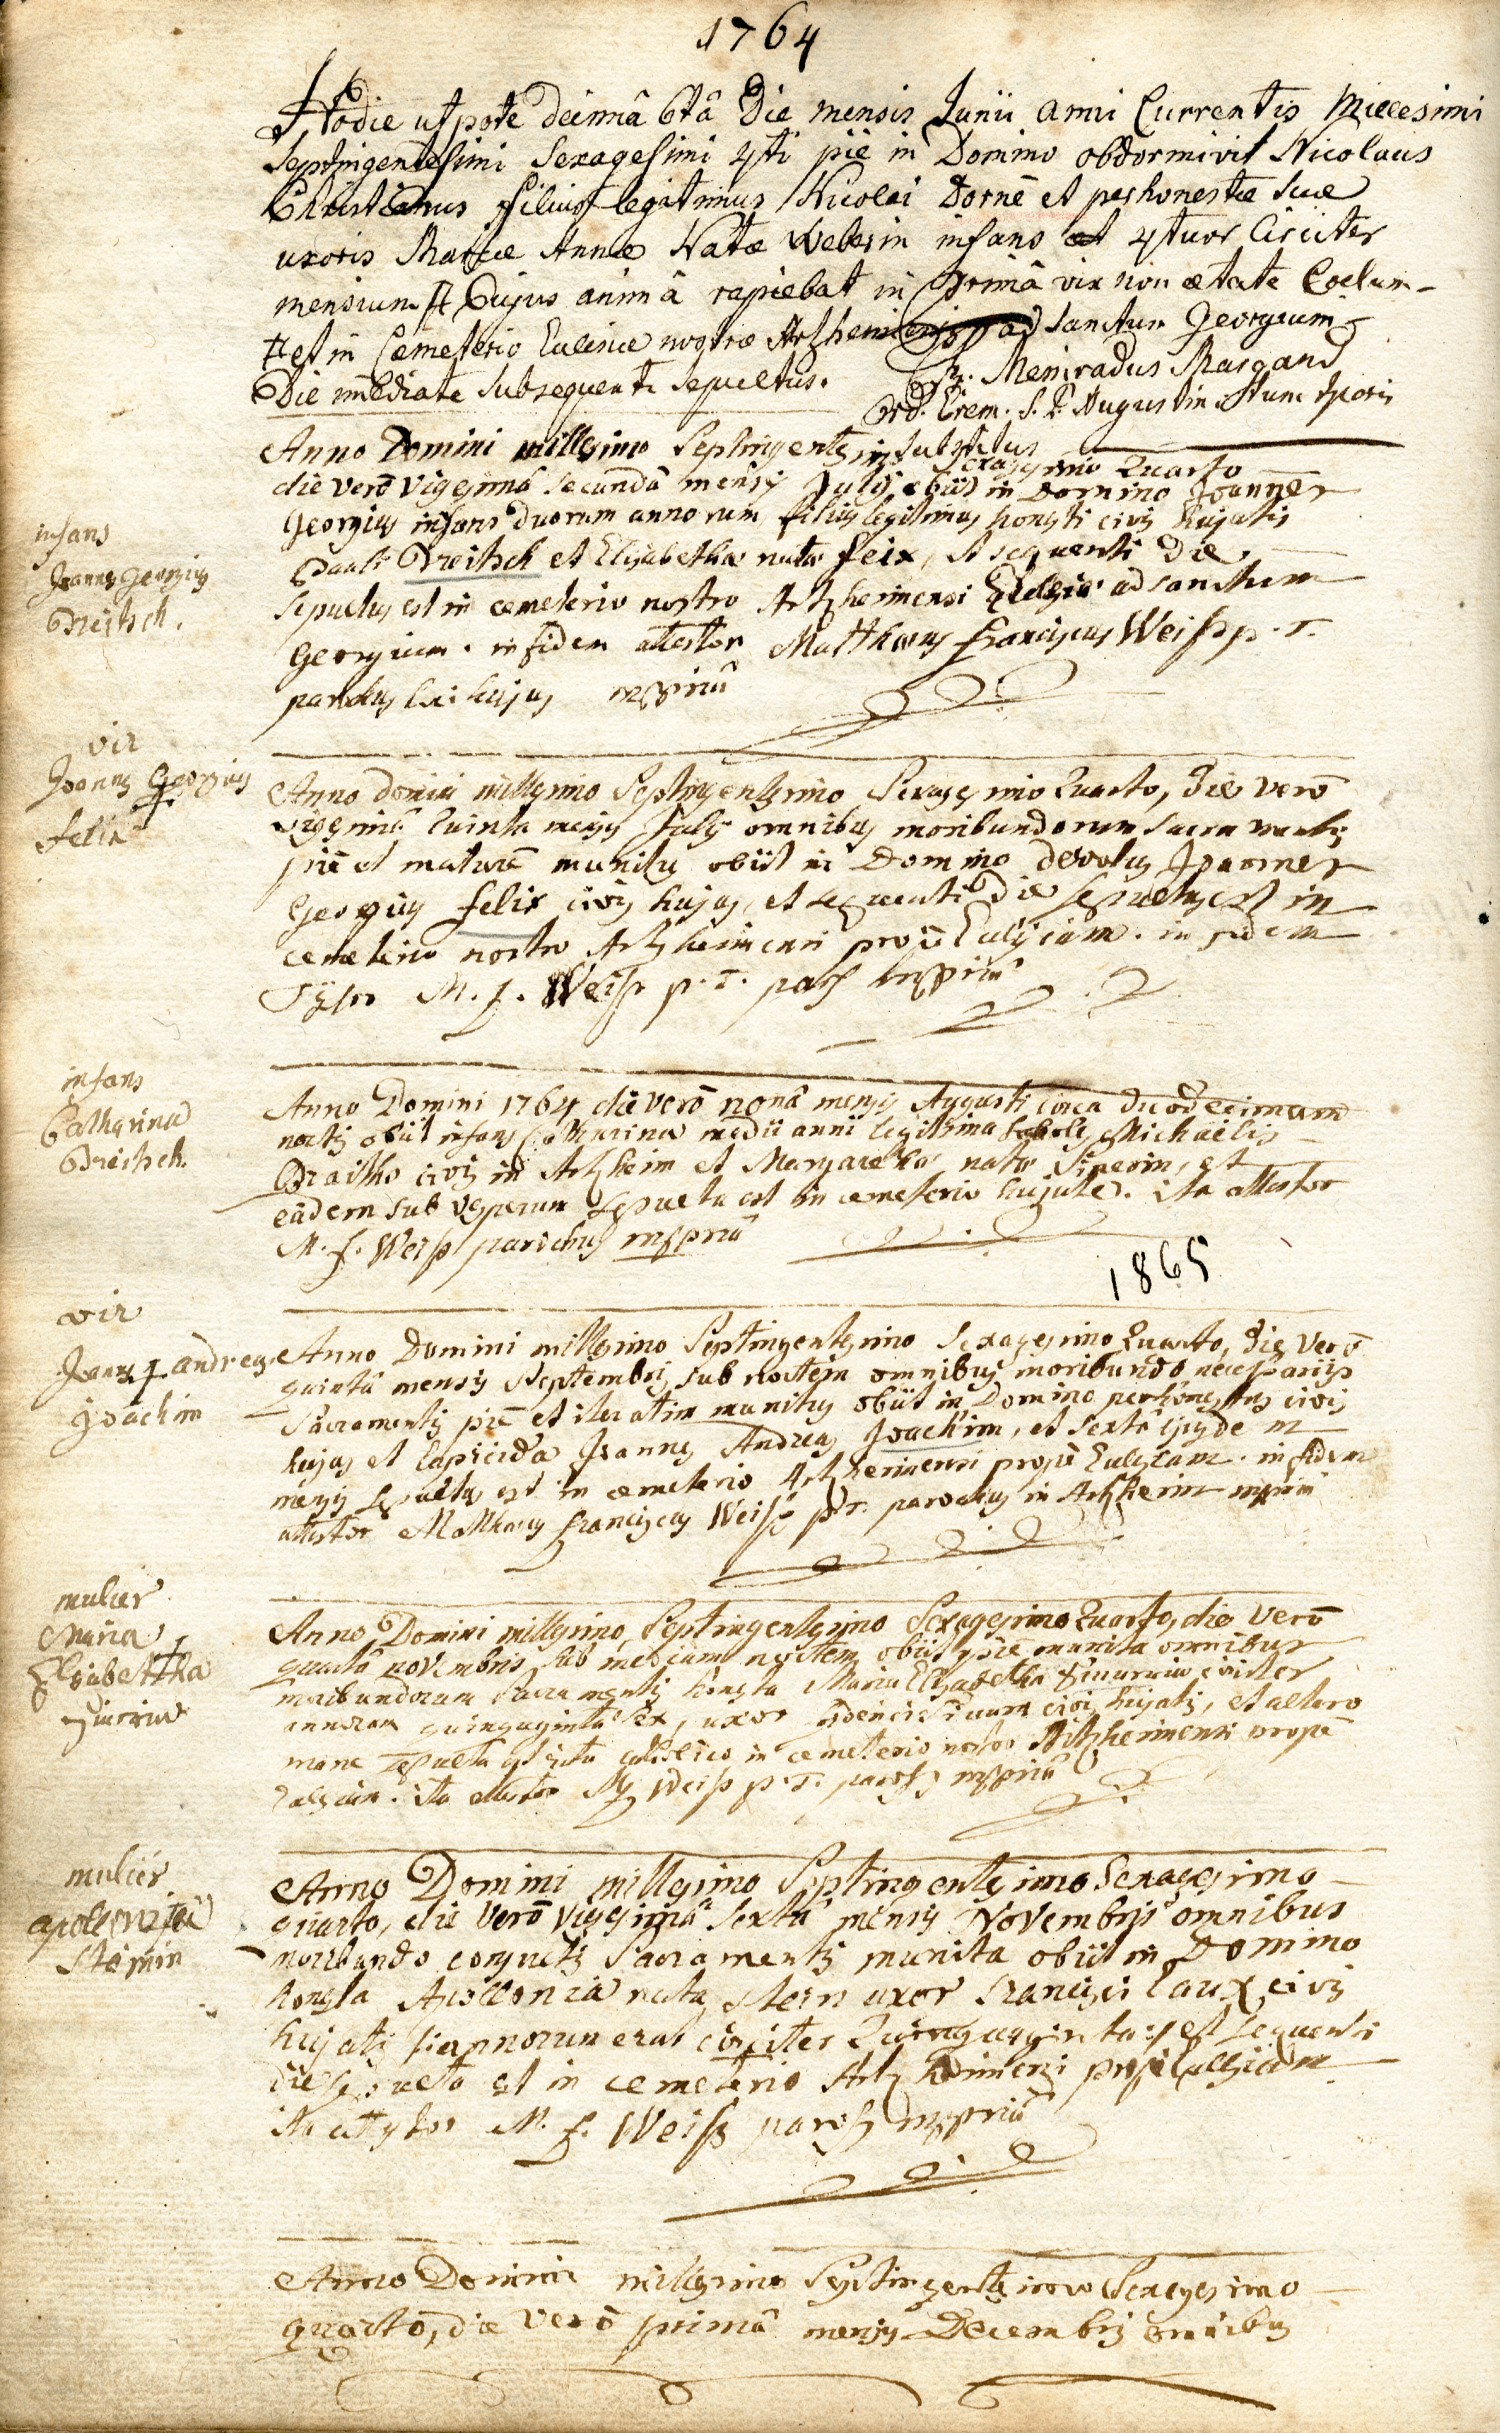 1764
Hodie utpote decimâ 6tâ Die mensis Junii anni Currentis Millesimi
Septingentesimi Sexagesimi 4ti pie in Domino obdormivit Nicolaus
Christianus filius legitimus Nicolai Dorne et perhonestæ suæ
uxoris Mariæ Annæ Natæ Weberin infans 4tuor Circiter
mensium # Cujus animâ rapiebat in primâ vix non ætate Coelum
# et in Cæmeterio Eccleiæ nostræ Artzheim ad sanctum Georgium
Die immediate subsequenti sepultus. Fr. Meinradus Margand
Ord. Erem. S. P. Augustini tunc tporis
substitus
Anno Domini millesimo Septingentesimo Sexagesimo Quarto
die verò vigesimâ secundâ mensis Julij obiit in Domino Joannes
Georgius infans duorum annorum filius legitimus honesti civis hujatis
Pauli Dreitsch et Elisabethæ natæ feix, et sequenti die
sepultus est in cemeterio nostro Artzheimensi Ecclesiæ ad sanctum
Georgium. in fidem attestor Matthæus franciscus Weiss p. T.
parochus loci hujus mppriâ
infans
Joannes Georgius
Dreitsch.
Anno domini millesimo Septingentesimo Sexagesimo Quarto, die verò
vigesimâ Quinta mensis Julij omnibus moribundorum sacramentis
piè et maturè munitus obiit in Domino devotus Joannes
Georgius felix civis hujas, et sequenti die sepultus est in
cemeterio nostro Artzheimensi propè Ecclesiam. in fidem
Testor M. f. Weiss p. T. paroh mppriâ
vir
Joannes Georgius
felix
Anno Domini 1764 die verò nonâ mensis Augusti circa duodecimam
noctis obiit infans Catharina medii anni legitima soboles Michaëlis
Draitsh civis in Artzheim et Margarethæ natæ, et
eâdem sub vesperum sepulta est in cemeterio hujate. ita attestor
M. f. Weiss parochus mppriâ
infans
Catharina
Dreitsch.
1865
Anno Domini millesimo Septingentesimo Sexagesimo Quarto, die verò
quintâ mensis Septembris, sub noctem omnibus moribundo necessariis
Sacramentis piè et iteratim munitus obiit in Domino perhonestus civis
hujas et lapicida Joannes Andreas Joachim, et sextâ ejusdem
mensis sepultus est in cemeterio Artzheimensi propè Ecclesiam. in fidem
attestor Matthæus franciscus Weiss p. T. parochus in Artzheim mppriâ
vir
Joannes andreas
joachim
Anno Domini millesimo Septingentesimo Sexagesimo Quarto, die verò
quartâ novembris sub mediam noctem obiit piè munita omnibus
moribundorum sacramentis honesta Maria Elisabetha circiter
annorum quinquaginta sex, uxor civis hujatis, et altero
mane sepulta est ritu catolico in cemeterio nostro Artzheimensi propè
Ecclesiam. ita attestor M f Weiss p. T. paroh mppriâ
mulier
Maria
Elisabetha
Anno Domini millesimo Septingentesimo Sexagesimo
quarto, die verò vigesimâ sextâ mensis Novembris omnibus
moribundo consuetis Sacramentis munita obiit in Domino
honesta Apollonia nata stein uxor Francisci Laux civis
hujatis annorum erat circiter Quinquaginta et sequenti
die sepulta est in cemeterio Artzheimensi propè Ecclesiam
ita attestor M. f. Weiss paroh mppriâ
mulier
apollonia
Steinin
Anno Domini millesimo Septingentesimo Sexagesimo
quarto, die verò primâ mensis Decembris omnibus